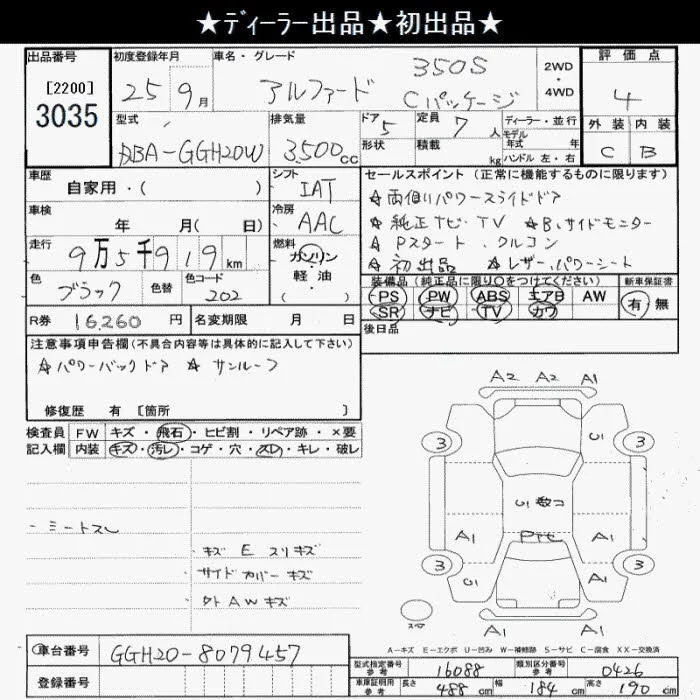 ★ディーラー出品★初出品★
出品番号 [2200] 3035
初度登録年月 25年 9月
車名・グレード アルファード 350S Cパッケージ
2WD・4WD
評価点 4
外装 C 内装 B
型式 DBA-GGH20W
排気量 3,500cc
ドア 5 形状
定員 7人 積載 kg
ディーラー・並行
モデル年式 年
ハンドル 左・右
車歴 自家用・( )
シフト IAT
車検 年 月( 日)
冷房 AAC
走行 9万5千919km
燃料 ガソリン・軽・油・( )
色 ブラック 色替 色コード 202
R券 16,260円 名変期限 月 日
セールスポイント(正常に機能するものに限ります)
☆両側パワースライドドア
☆純正ナビ・TV ☆B.サイドモニター
☆Pスタート、クルコン
☆初出品 ☆レザー.パワーシート
装備品(純正品に限り○をつけてください) 新車保証書
PS PW ABS エアB AW 有・無
SR ナビ TV カワ
後日品
注意事項申告欄(不具合内容等は具体的に記入して下さい)
☆パワーバックドア ☆サンルーフ
修復歴 有 [箇所 ]
検査員 FW キズ・飛石・ヒビ割・リペア跡・×要
記入欄 内装 キズ・汚レ・コゲ・穴・スレ・キレ・破レ
A2 A2 A1
U1
3 3
U1数コ
A1 A1
3 U1 A1 3
A1 A1
・シートスレ
・キズ E スリキズ
・サイドカバーキズ
・外AWキズ
A-キズ E-エクボ U-凹み W-補修跡 S-サビ C-腐食 XX-交換済
車台番号 GGH20-8079457
登録番号
型式指定番号 参考 16088 類別区分番号 参考 0426
車庫証明用 参考 長さ 488cm 幅 184cm 高さ 190cm